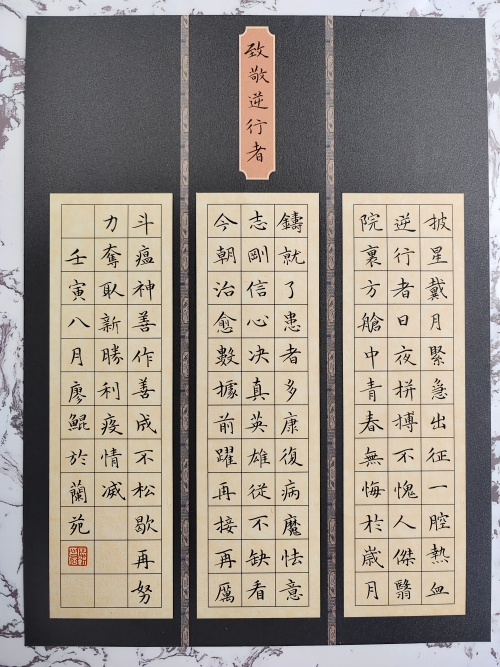 致敬逆行者
披星戴月緊急出征一腔熱血
逆行者日夜拼搏不愧人傑翳
院裏方艙中青春無悔於歲月
鑄就了患者多康復病魔怯意
志剛信心决真英雄從不缺看
今朝治愈數據前躍再接再厲
斗瘟神善作善成不松歇再努
力奪取新勝利疫情滅
壬寅八月廖鯤於蘭苑